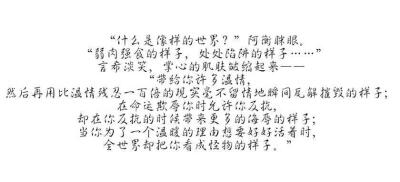 “什么是像样的世界？”阿衡眯眼。
“弱肉强食的样子，处处陷阱的样子……”
言希淡笑，掌心的肌肤皱缩起来——
“带给你许多温情，
然后再用比温情残忍一百倍的现实毫不留情地瞬间瓦解摧毁的样子；
在命运欺辱你时允许你反抗，
却在你反抗的时候带来更多的侮辱的样子；
当你为了一个温暖的理由想要好好活着时，
全世界却把你看成怪物的样子。”